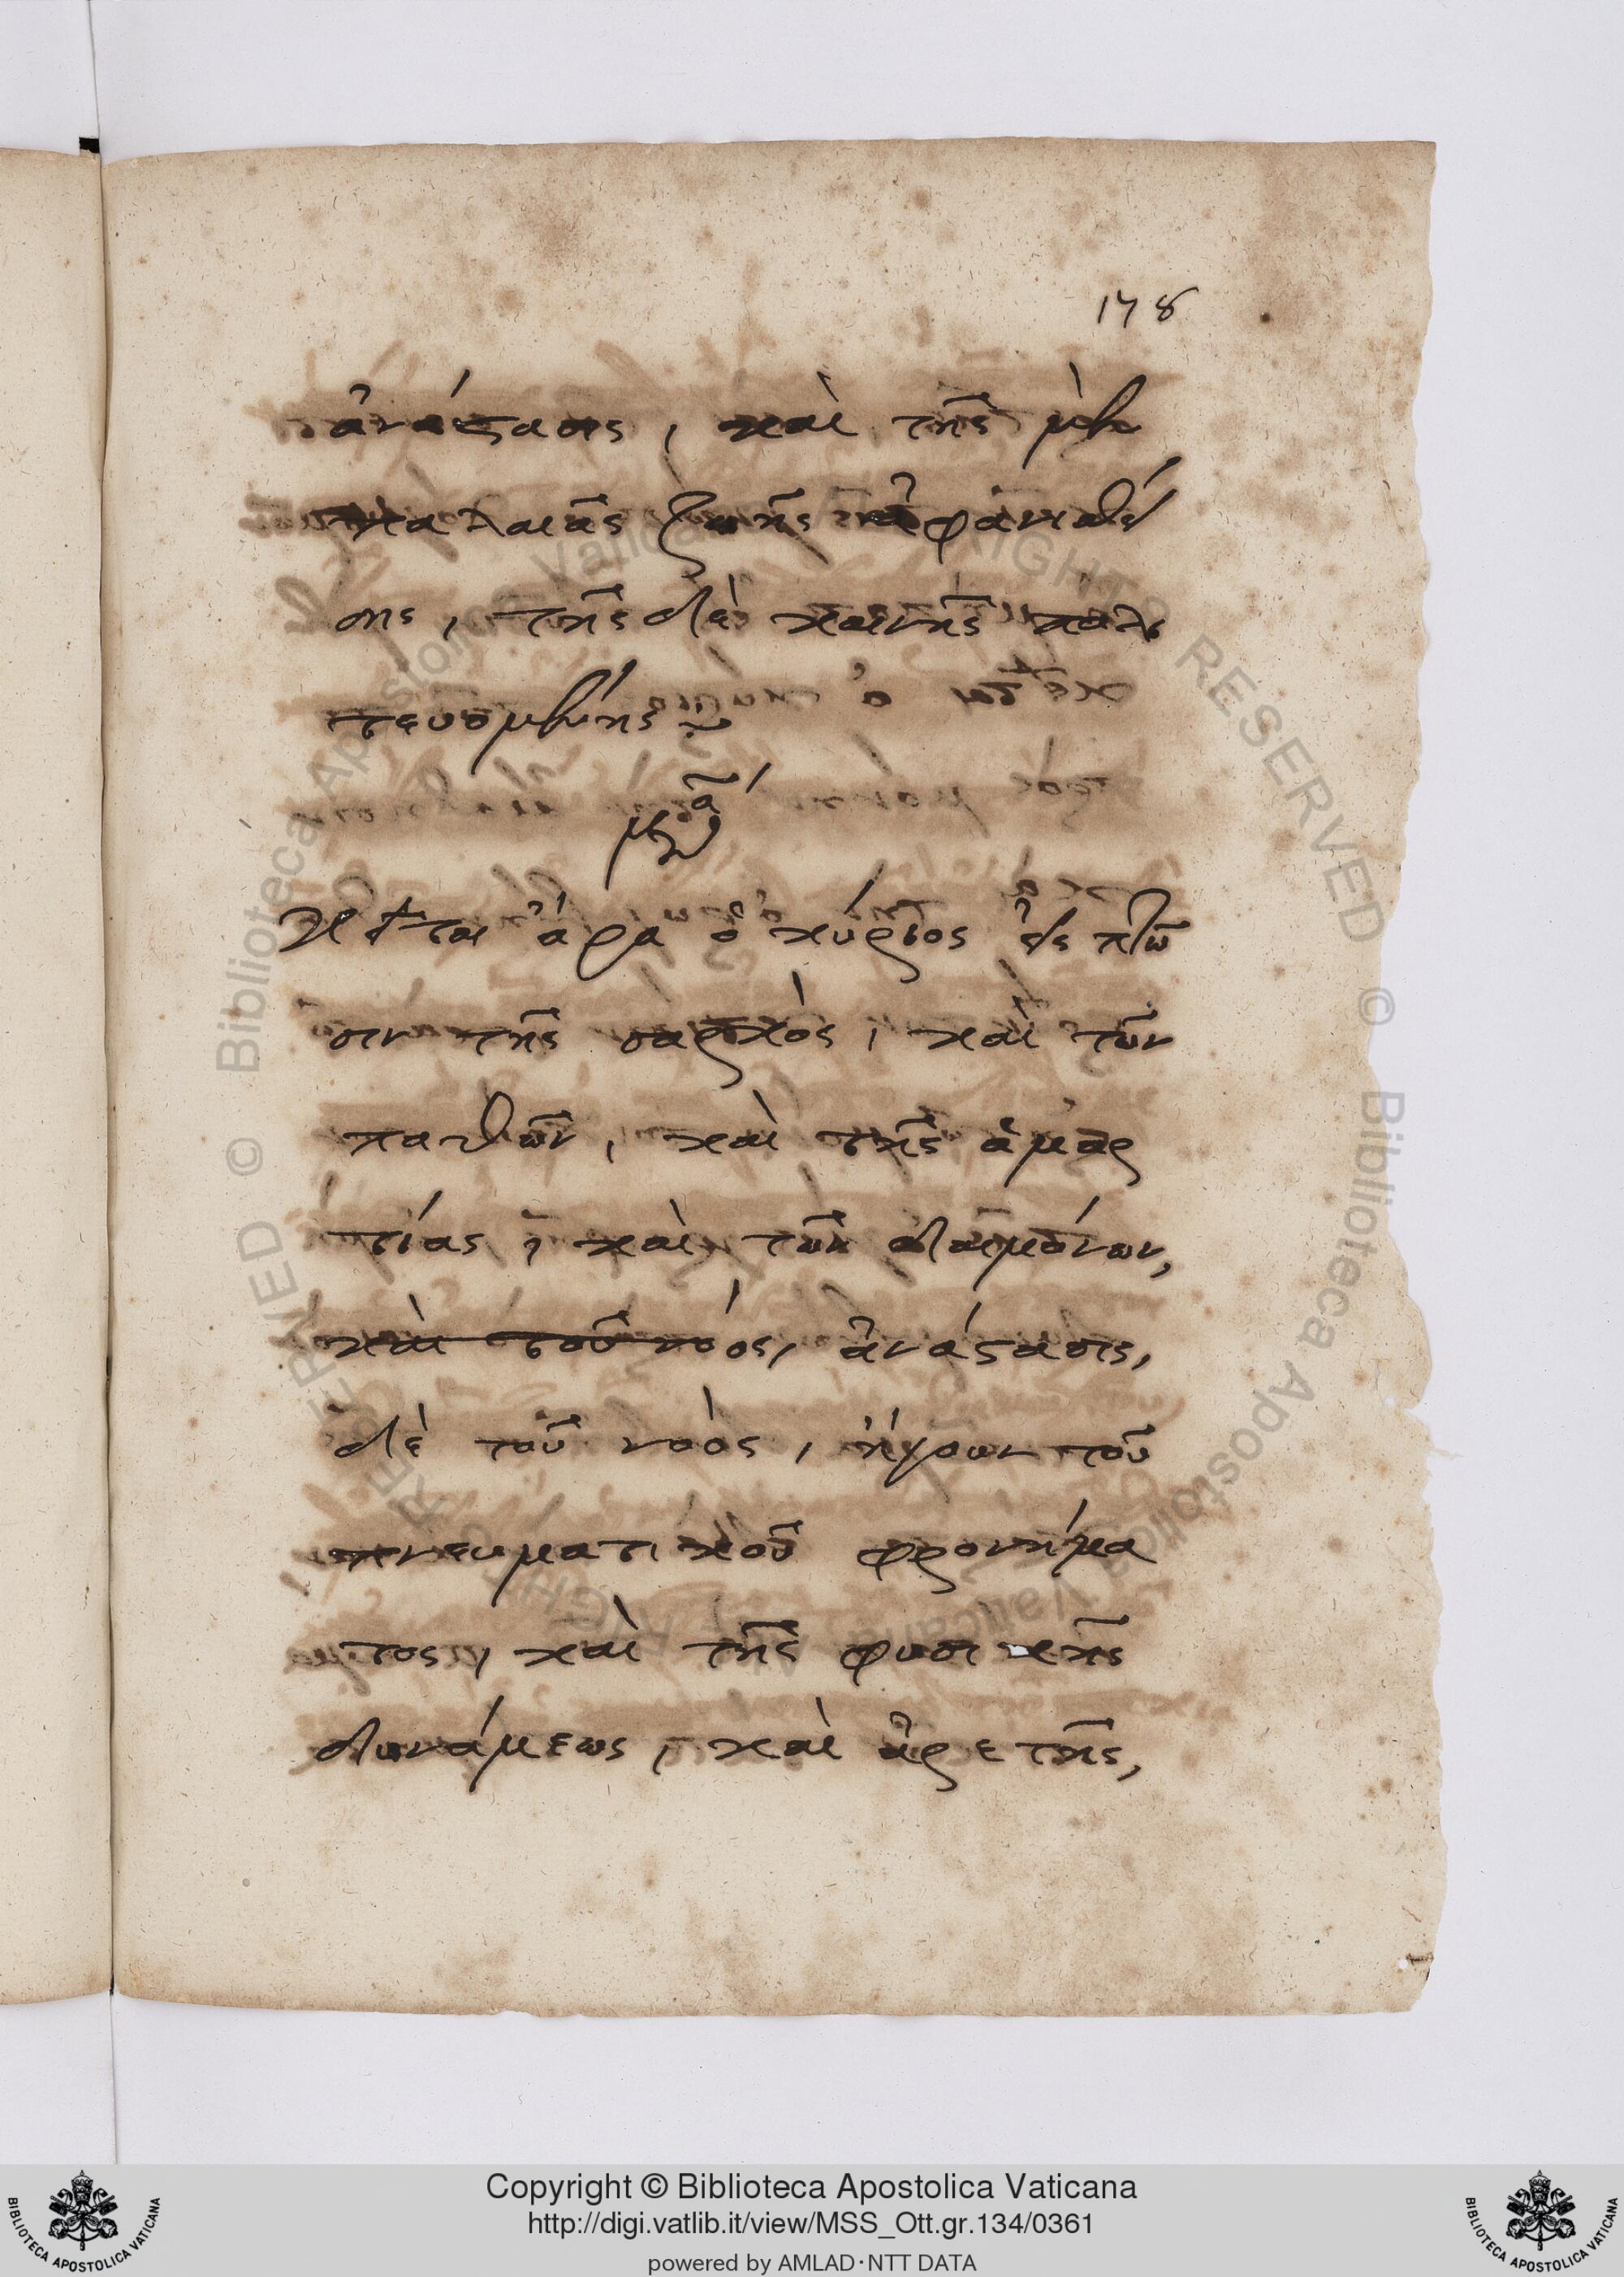 178
ἀνάστασις, καὶ τῆς μὲν
παλαιᾶς ζωῆς ἀφανισθεί
σης, τῆς δὲ καινῆς πολι
τευομένης
Κεῖται ἄρα ὁ κύριος εἰς πτῶ
σιν τῆς σαρκὸς, καὶ τῶν
παθῶν, καὶ τῆς ἁμαρ
τίας, καὶ τῶν δαιμόνων,
καὶ τοῦ νοός, ἀνάστασις,
δὲ τοῦ νοὸς, ἤγουν τοῦ
πνευματικοῦ φρονήμα
τος, καὶ τῆς φυσικῆς
δυνάμεως, καὶ ἀρετῆς,
© Biblioteca Apostolica Vaticana ALL RIGHTS RESERVED © Biblioteca Apostolica Vaticana ALL RIGHTS RESERVED
Copyright © Biblioteca Apostolica Vaticana
http://digi.vatlib.it/view/MSS_Ott.gr.134/0361
powered by AMLAD·NTT DATA
BIBLIOTECA APOSTOLICA VATICANA
BIBLIOTECA APOSTOLICA VATICANA